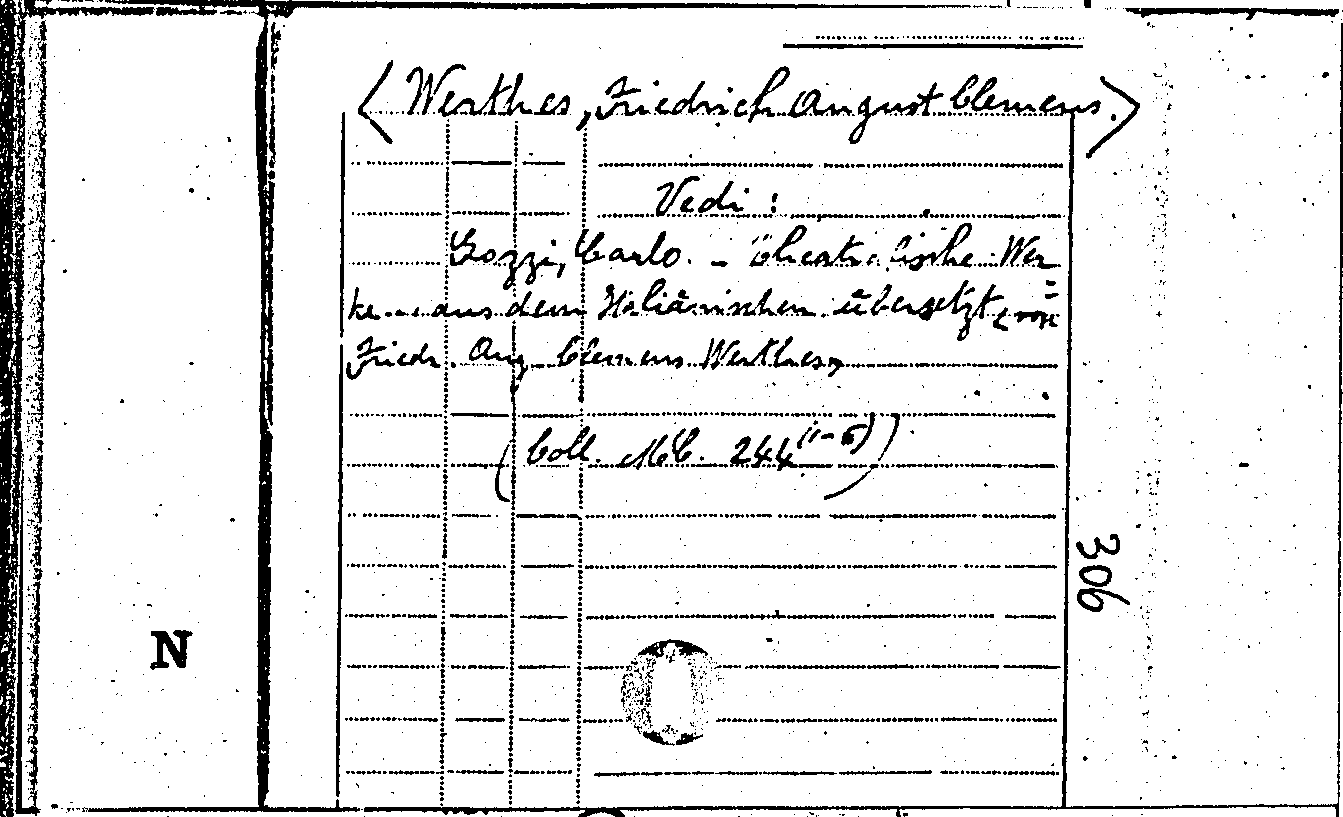 <Werthes, Friedrich August Clemens.>
Vedi:
Gozzi, Carlo. - Theatralische Wer=
ke... aus dem Italiänischen übersetzt <von
Friedr. Aug. Clemens Werthes>
(Coll. It. 244 (1-5))
306
N